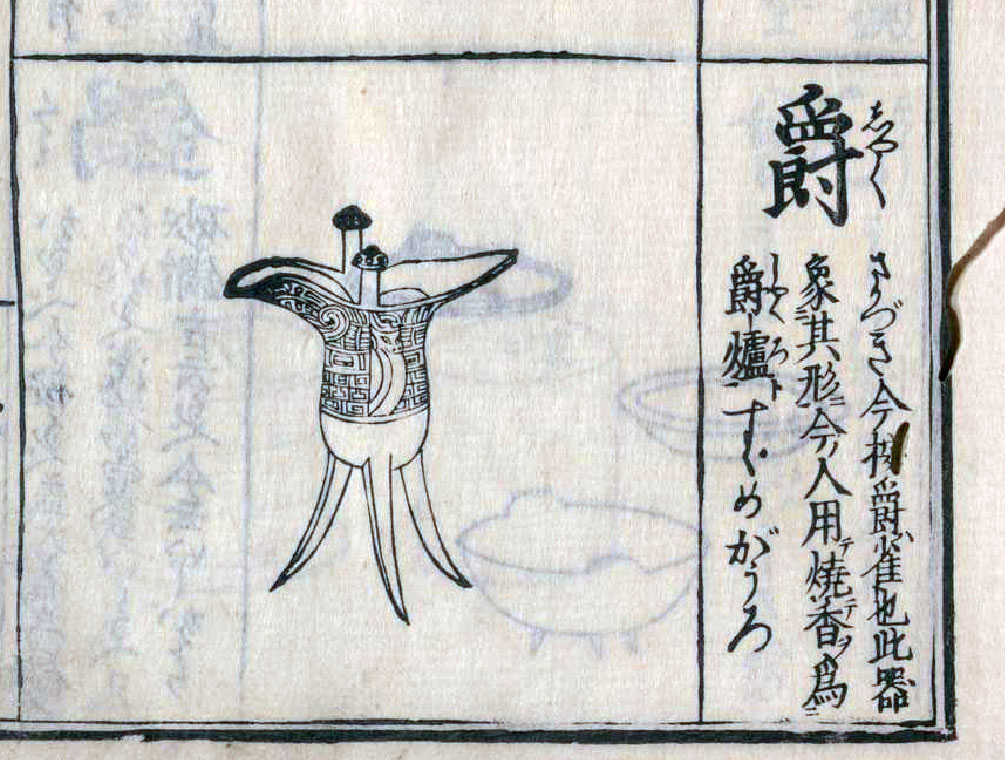 爵 しやく
さかづき今按爵ハ雀也此器
象ニ其形ニ今ノ人用テ焼テ香ヲ為ニ
爵爐ト すゞめがうろ
しやくろ